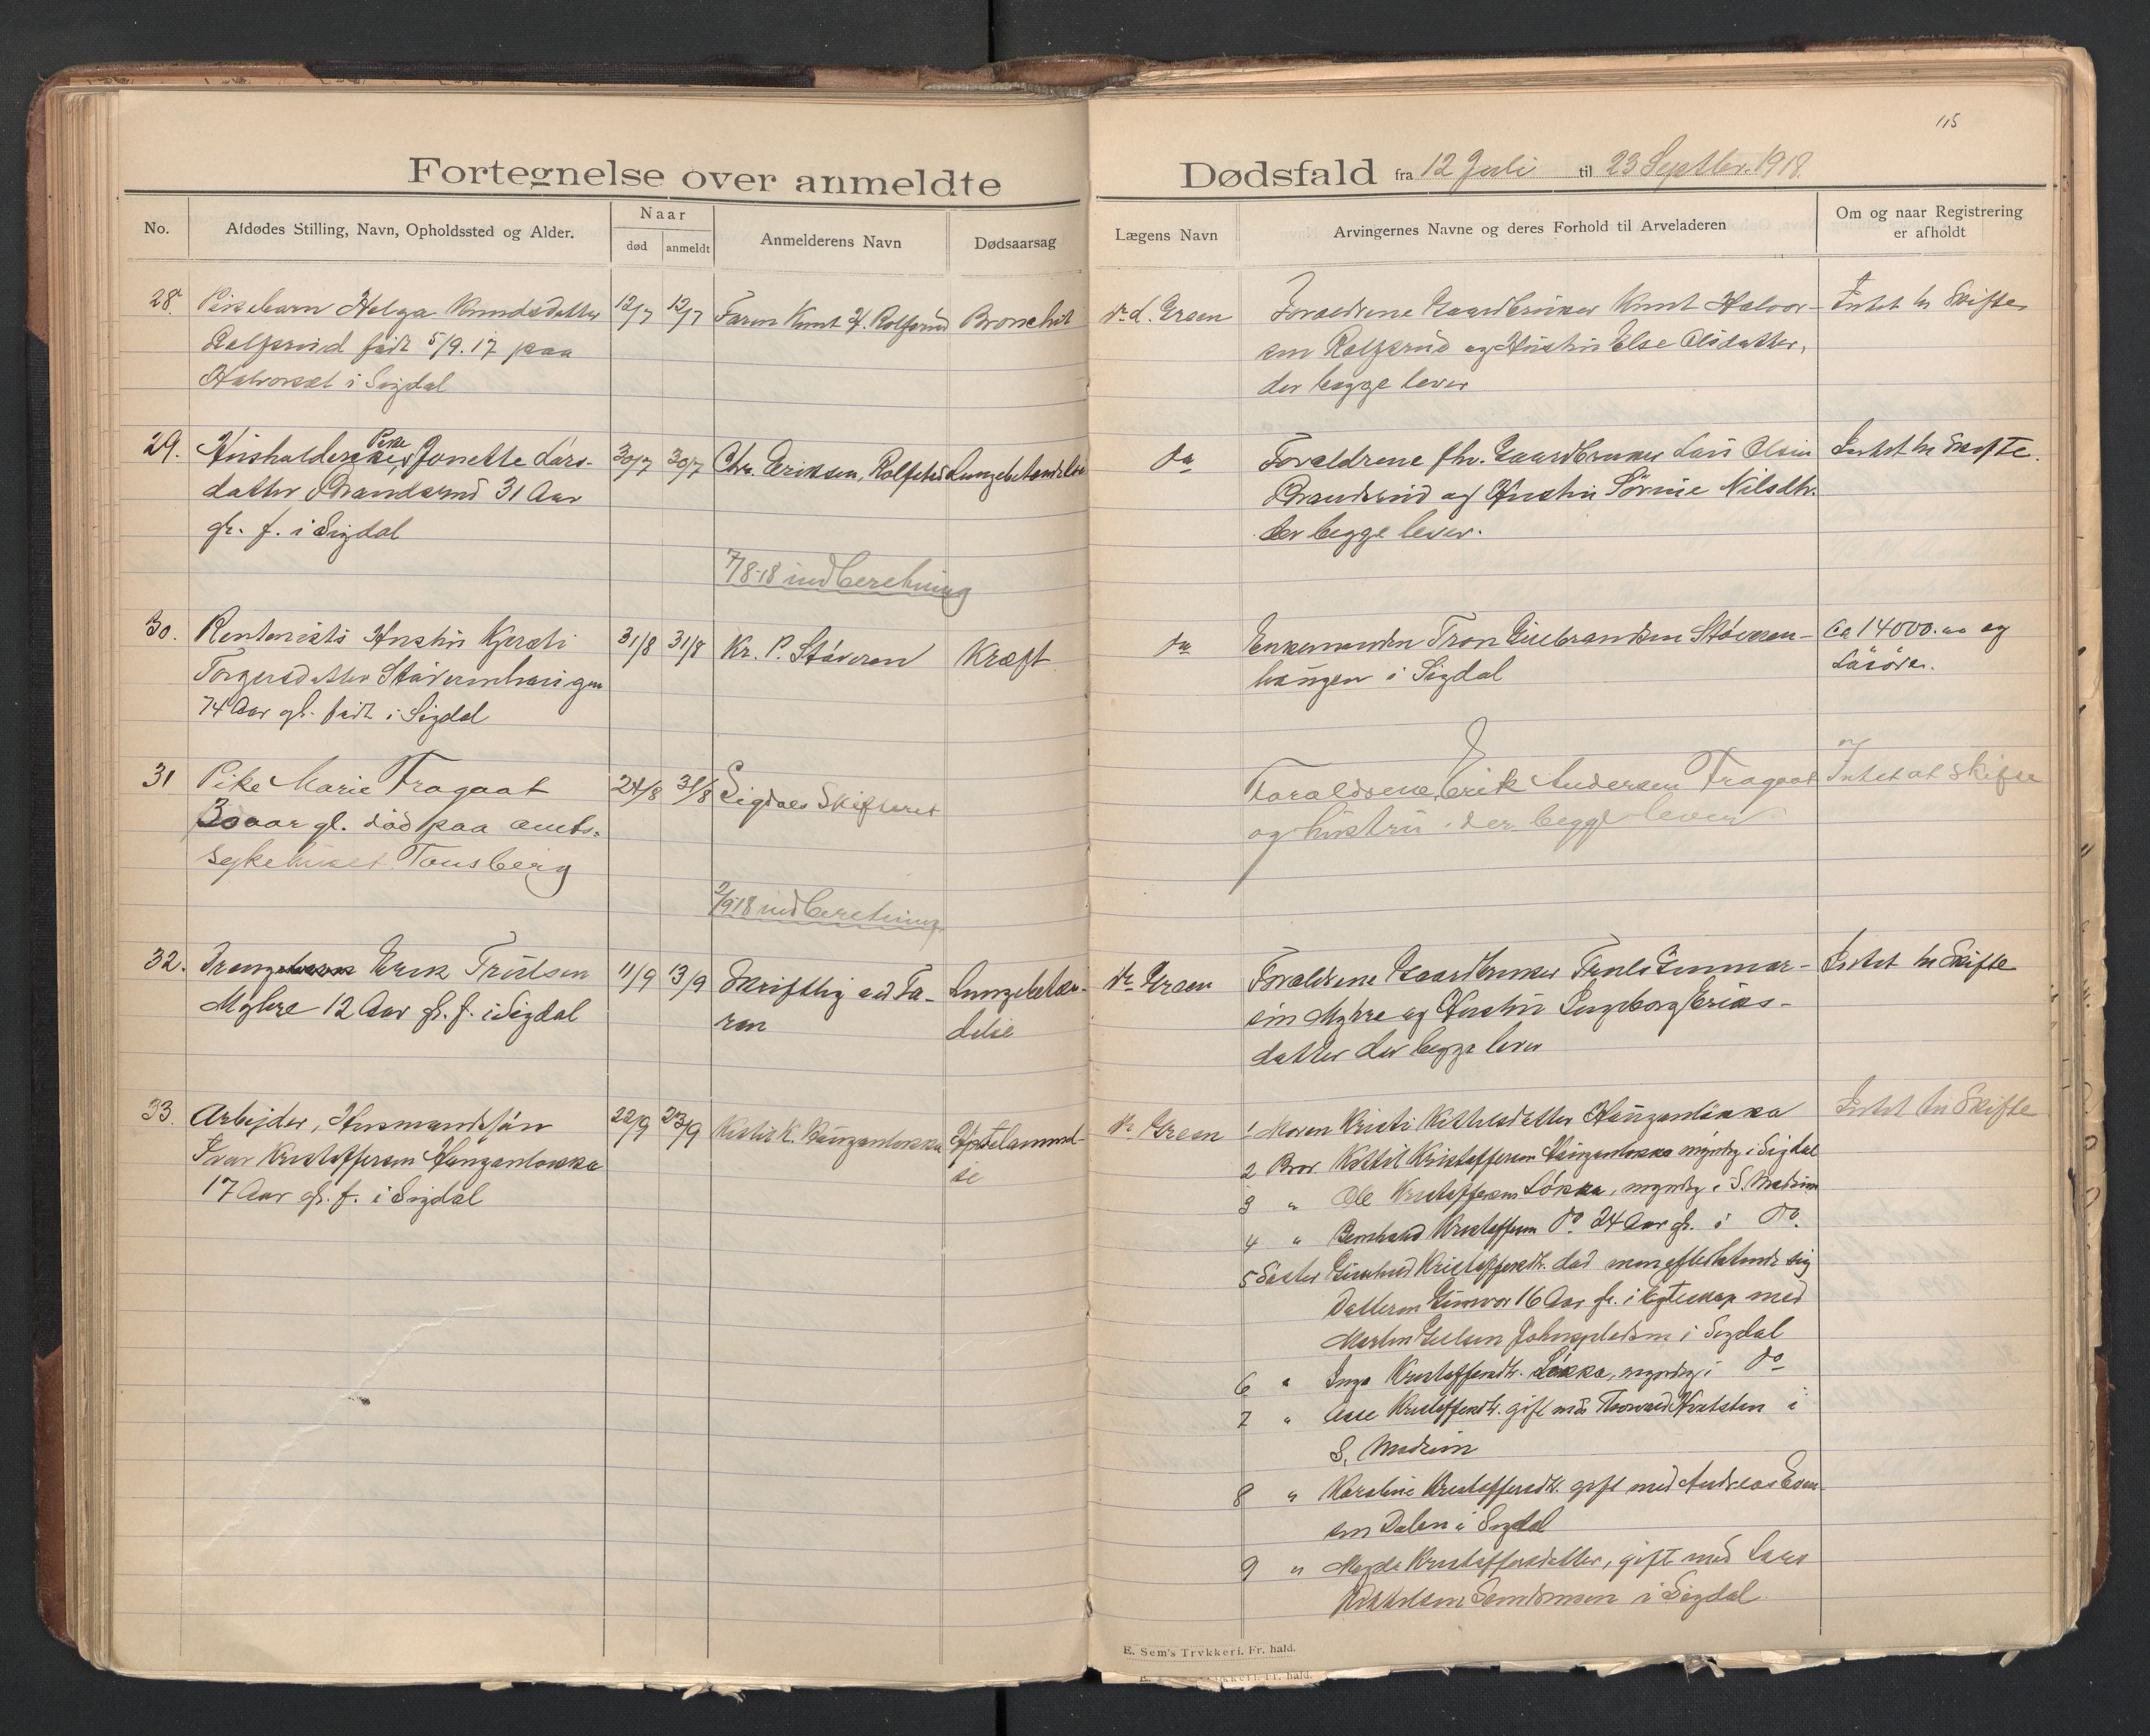 115
Fortegnelse over anmeldte Dødsfald fra 12 Juli til 23 Septbr. 1918.
No.
Afdødes Stilling, Navn, Opholdssted og Alder.
Naar
død
anmeldt
Anmelderens Navn
Dødsaarsag
Lægens Navn
Arvingernes Navne og deres Forhold til Arveladeren
Om og naar Registrering
er afholdt
28.
Pikebarn Helga Knudsdatter
Rolfsrud født 5/9.17 paa
Halvorset i Sigdal
12/7
12/7
Faren Knut H. Rolfsrud
Bronchit
dr. L. Green
Forældrene Gaardbruker Knut Halvor-
sen Rolfsrud og Hustru Else Olsdatter,
der begge lever
Intet te Skifte
29.
Husholderske, Pike Jonette Lars-
datter Brandsrud 31 Aar
gl. f. i Sigdal
30/7
30/7
Chr. Eriksen, Rolfstad
Lungebetændelse
do
Forældrene fhv. Gaardbruker Lars Olsen
Brandsrud og Hustru Sørine Nilsdtr.
der begge lever.
Intet te Skifte.
7/8-18 indberetning
30.
Rentenists Hustru Kjersti
Torgersdatter Støvernhaugen
74 Aar gl. født i Sigdal
31/8
31/8
Kr. P. Støvern
Kræft
do
Enkemanden Tron Gulbrandsen Støvern-
haugen i Sigdal
Ca 14000.00 og
Løsøre.
31
Pike Marie Fragaat
30 aar gl. død paa amts-
sykehuset Tønsberg
24/8
31/8
Sigdals Skifteret
Forældrene, Erik Andersen Fragaat
og hustru der begge lever
Intet at skifte
2/9-18 indberetning
32.
Dreng Erik Trulsen
Myhre 12 Aar gl. f. i Sigdal
11/9
13/9
Skriftlig ved Fa-
ren
Lungebetæn-
delse
dr. Green
Forældrene Gaardbruker Truls Gunnar-
sen Myhre og Hustru Ingeborg Eriks-
datter der begge lever
Intet te Skifte
33.
Arbejder, Husmandssøn
Ivar Kristoffersen Haugenløkka
17 Aar gl. f. i Sigdal
22/9
23/9
Kittil K. Haugenløkka
dr. Green
1 Moren Kristi Kittilsdatter Haugenløkka
2 Bror Kittil Kristoffersen Haugenløkka myndig i Sigdal
3 " Ole Kristoffersen Løkka, myndig i S. Modum
4 " Bernhard Kristoffersen do 24 Aar gl. i do.
5 Søster Gunhild Kristoffersdtr. død men efterlatende sig
Datteren Gunvor 16 Aar gl. i Egteskap med
Martin i Sigdal
6 " Inga Kristoffersdtr. Løkka, myndig i do
7 " Aase Kristoffersdtr. gift med Thorvald i
S. Modum
8 " Karoline Kristoffersdtr. gift med Andreas Even-
sen Dalen i Sigdal
9 " Magda Kristoffersdatter, gift med Lars
i Sigdal
Intet te Skifte
E. Sem's Trykkeri. Fr. hald.